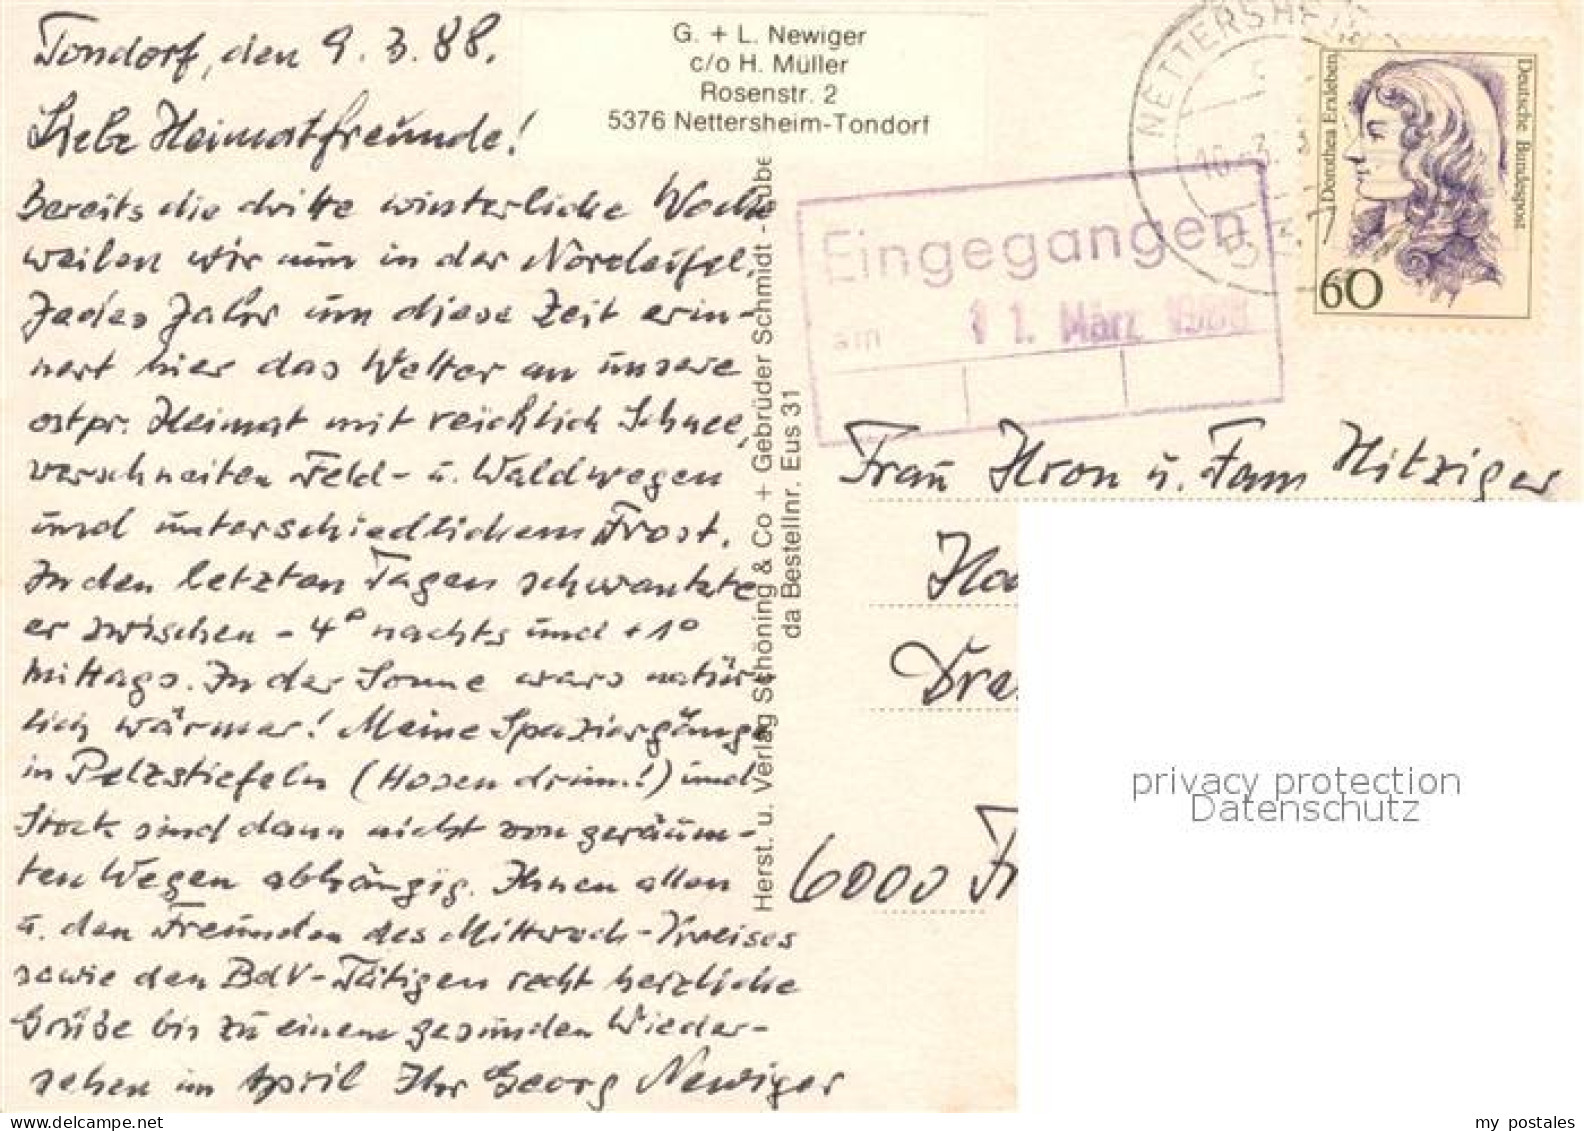 Tondorf, den 9.3.88.
Liebe Heimatfreunde!
Bereits die dritte winterliche Woche
weilen wir nun in der Nordeifel.
Jedes Jahr um diese Zeit erin-
nert hier das Wetter an unsere
ostpr. Heimat mit reichlich Schnee,
verschneiten Feld- u. Waldwegen
und unterschiedlichem Frost.
In den letzten Tagen schwankte
er zwischen -4° nachts und +1°
mittags. In der Sonne wars natür-
lich wärmer! Meine Spaziergänge
in Pelzstiefeln (Hosen drin!) und
Stock sind dann nicht von geräum-
ten Wegen abhängig. Ihnen allen
u. den Freunden des Mittwoch-Kreises
sowie den BdV-Tätigen recht herzliche
Grüße bis zu einem gesunden Wieder-
sehen im April Ihr Georg Newiger
G. + L. Newiger
c/o H. Müller
Rosenstr. 2
5376 Nettersheim-Tondorf
Herst. u. Verlag Schöning & Co + Gebrüder Schmidt - Lübe
da Bestellnr. Eus 31
NETTERSHEIM
Dorothea Erxleben
Deutsche Bundespost
60
Eingegangen
am 11. März 1988
Frau Kron u. Fam Hitziger
Ha
Dre
6000 Fr
privacy protection
Datenschutz
my postales